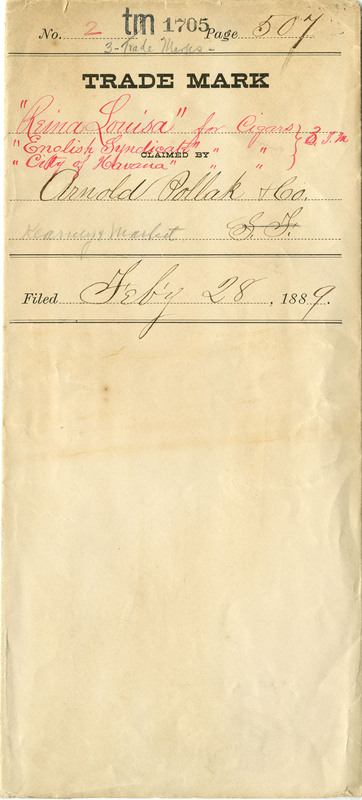 No. 2 tm 1705 Page 507
3 - Trade Marks -
TRADE MARK
"Reina Louisa" for Cigars
"English Syndicate" " " } 3 T.M
"City of Havana" " "
CLAIMED BY
Arnold Pollak & Co.
Kearney & Market S. F.
Filed Feby 28, 1889.